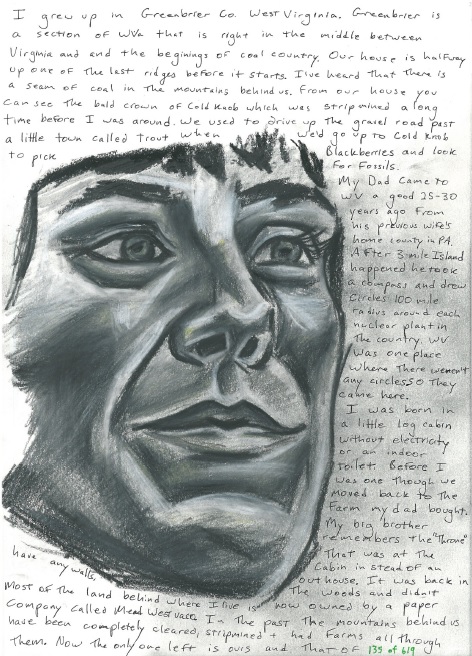 I grew up in Greenbrier Co. West Virginia. Greenbrier is
a section of WVa that is right in the middle between
Virginia and and the beginings of coal country. Our house is halfway
up one of the last ridges before it starts. I've heard that there is
a seam of coal in the mountains behind us. From our house you
can see the bald crown of Cold Knob which was stripmined a long
time before I was around. We used to drive up the gravel road past
a little town called Trout when we'd go up to Cold Knob
to pick Blackberries and look
for Fossils.
My Dad came to
WV a good 25-30
years ago from
his previous wife's
home county in PA.
After 3 mile Island
happened he took
a compass and drew
circles 100 mile
radius around each
nuclear plant in
the country. WV
was one place
where there weren't
any circles so they
came here.
I was born in
a little log cabin
without electricity
or an indoor
toilet. Before I
was one though we
moved back to the
Farm my dad bought.
My big brother
remembers the "Throne"
that was at the
cabin in stead of an
outhouse. It was back in
the woods and didn't
have any walls.
Most of the land behind where I live is now owned by a paper
company called Mead Westvaco. In the past the mountains behind us
have been completely cleared, stripmined + had farms all through
them. Now the only one left is ours and that of 135 of 619